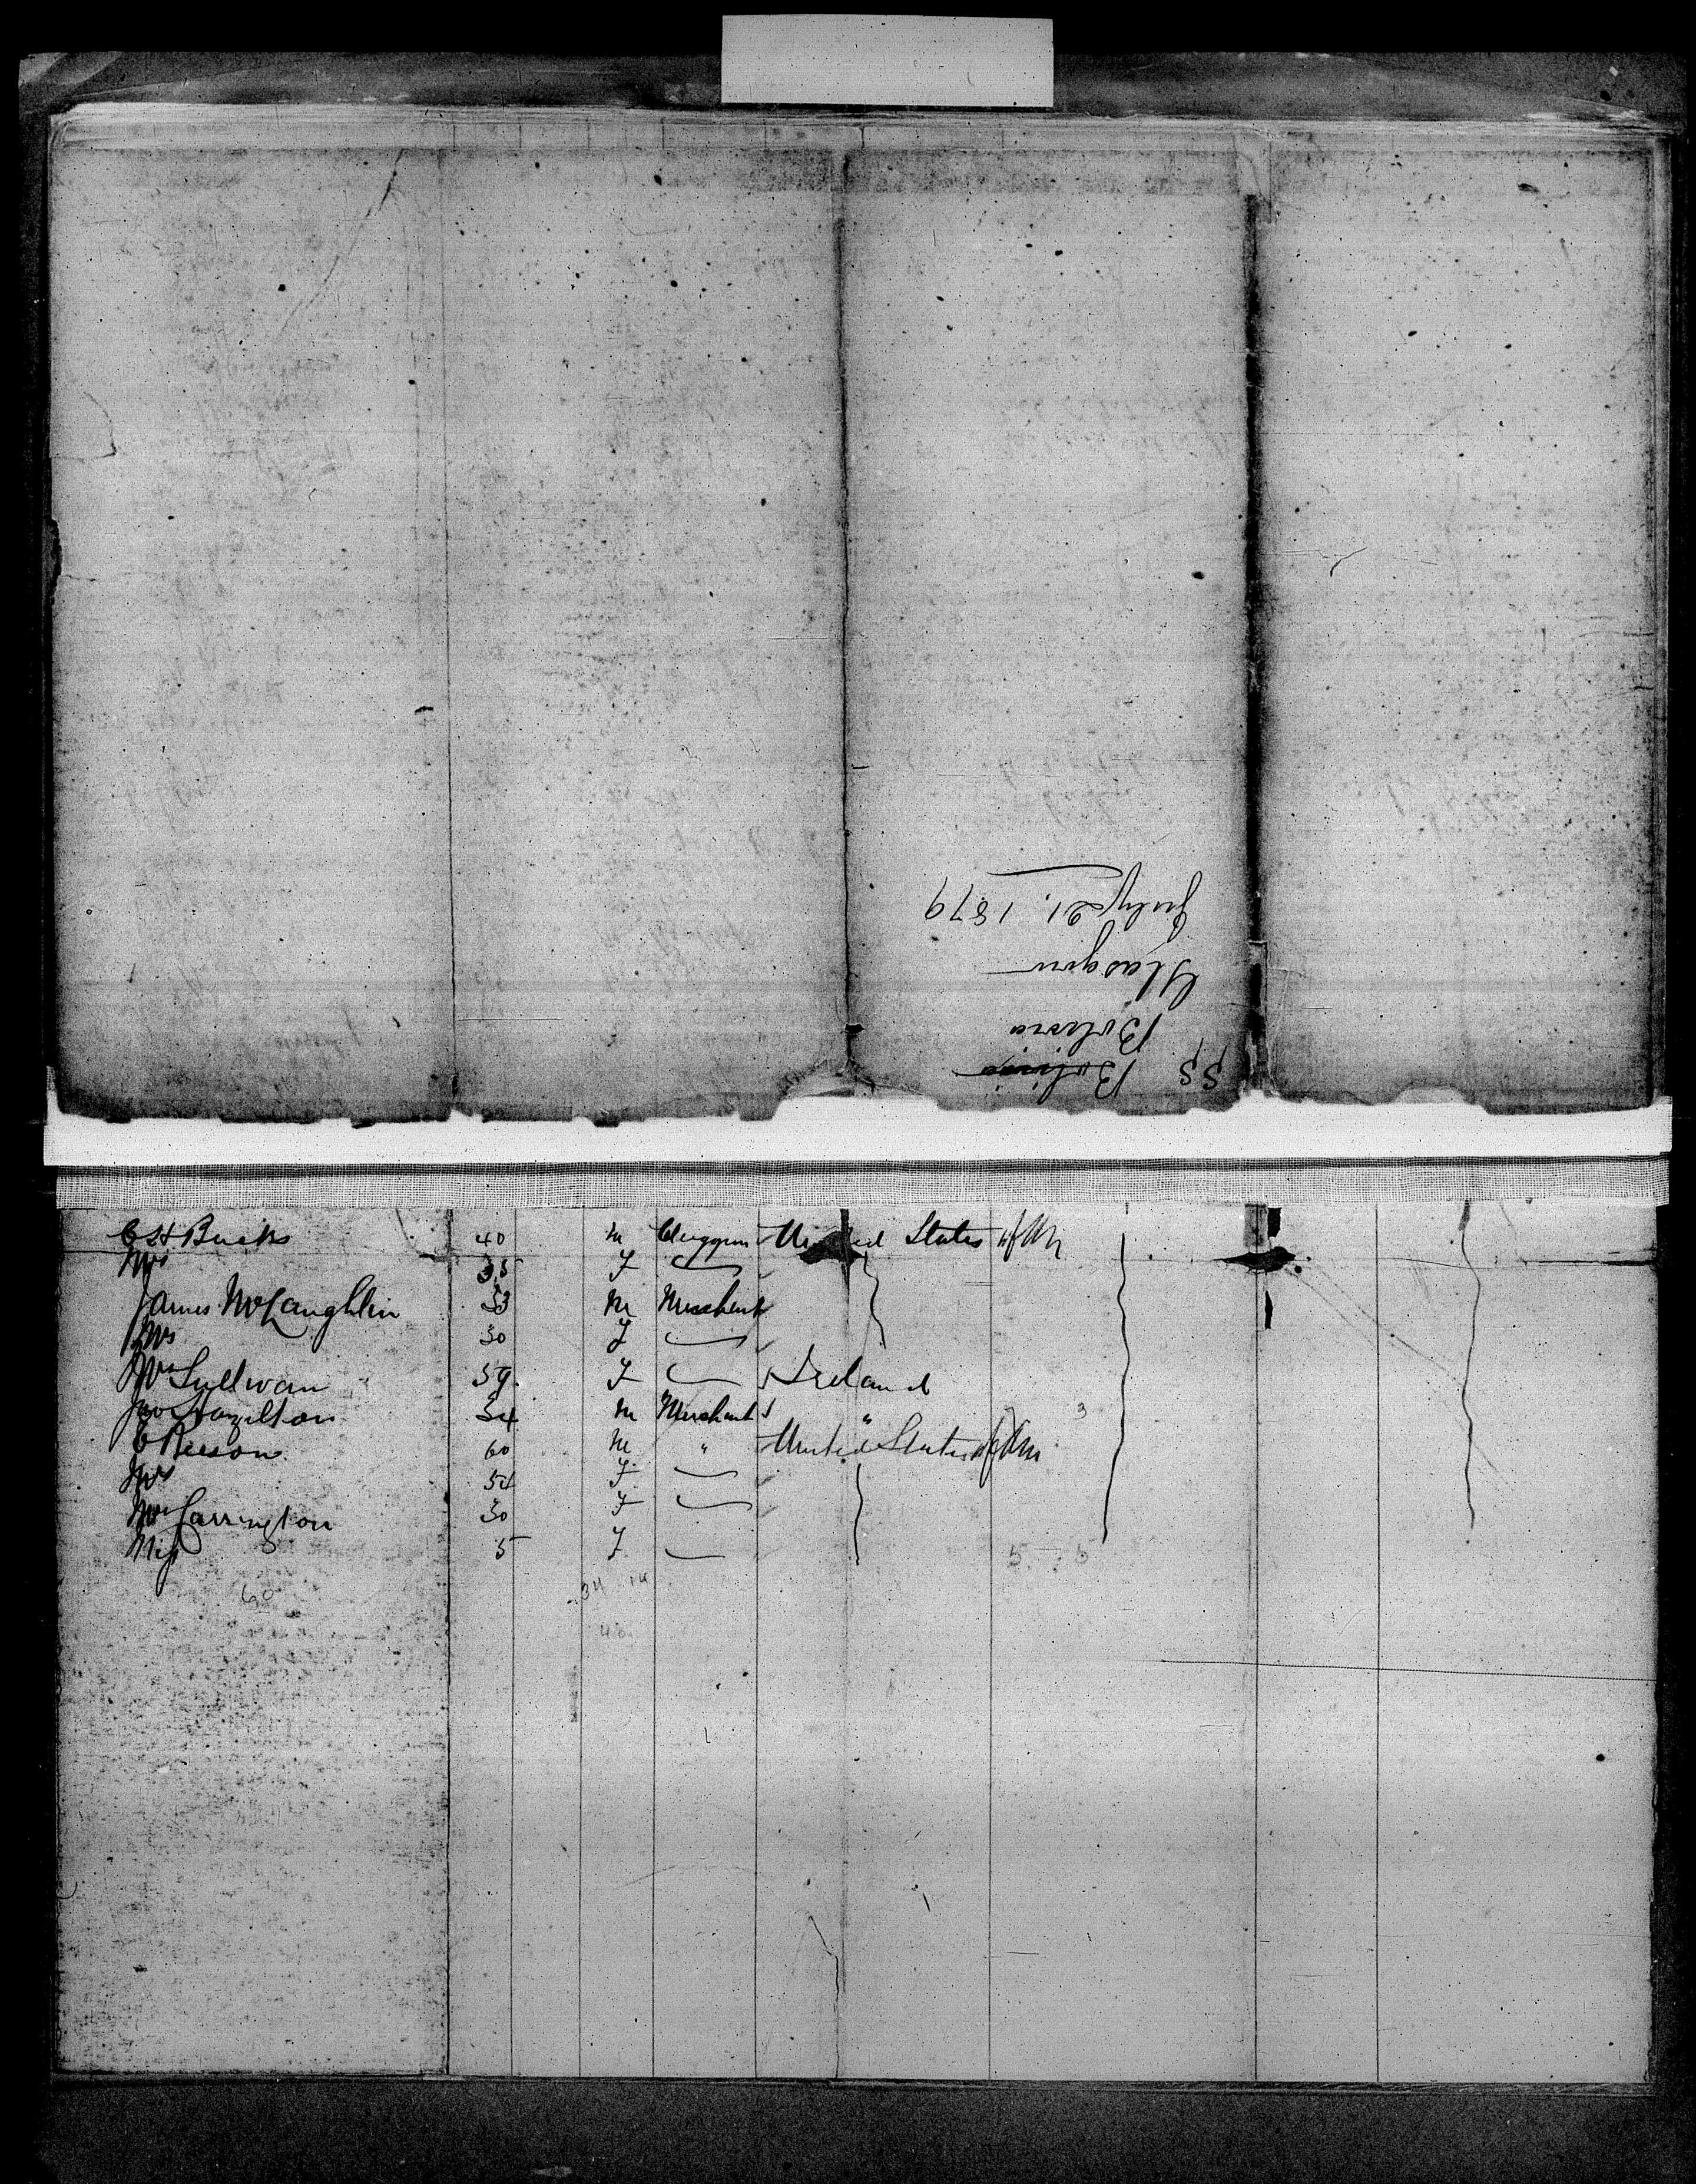 SS Bolivia
Bolivia
Glasgow
July 21. 1879
C H Burks 40 M Clergyman United States of Am
Mrs 35 F
James McLaughlin 33 M Merchant
Mrs 30 F
Mrs Sullivan 59 F Ireland
Jno Hazelton 34 M Merchant "
C Reeson 60 M " United States of Am
Mrs 54 F
Mrs Carrington 30 F
Miss 5 F
5 5
60 34 14
40